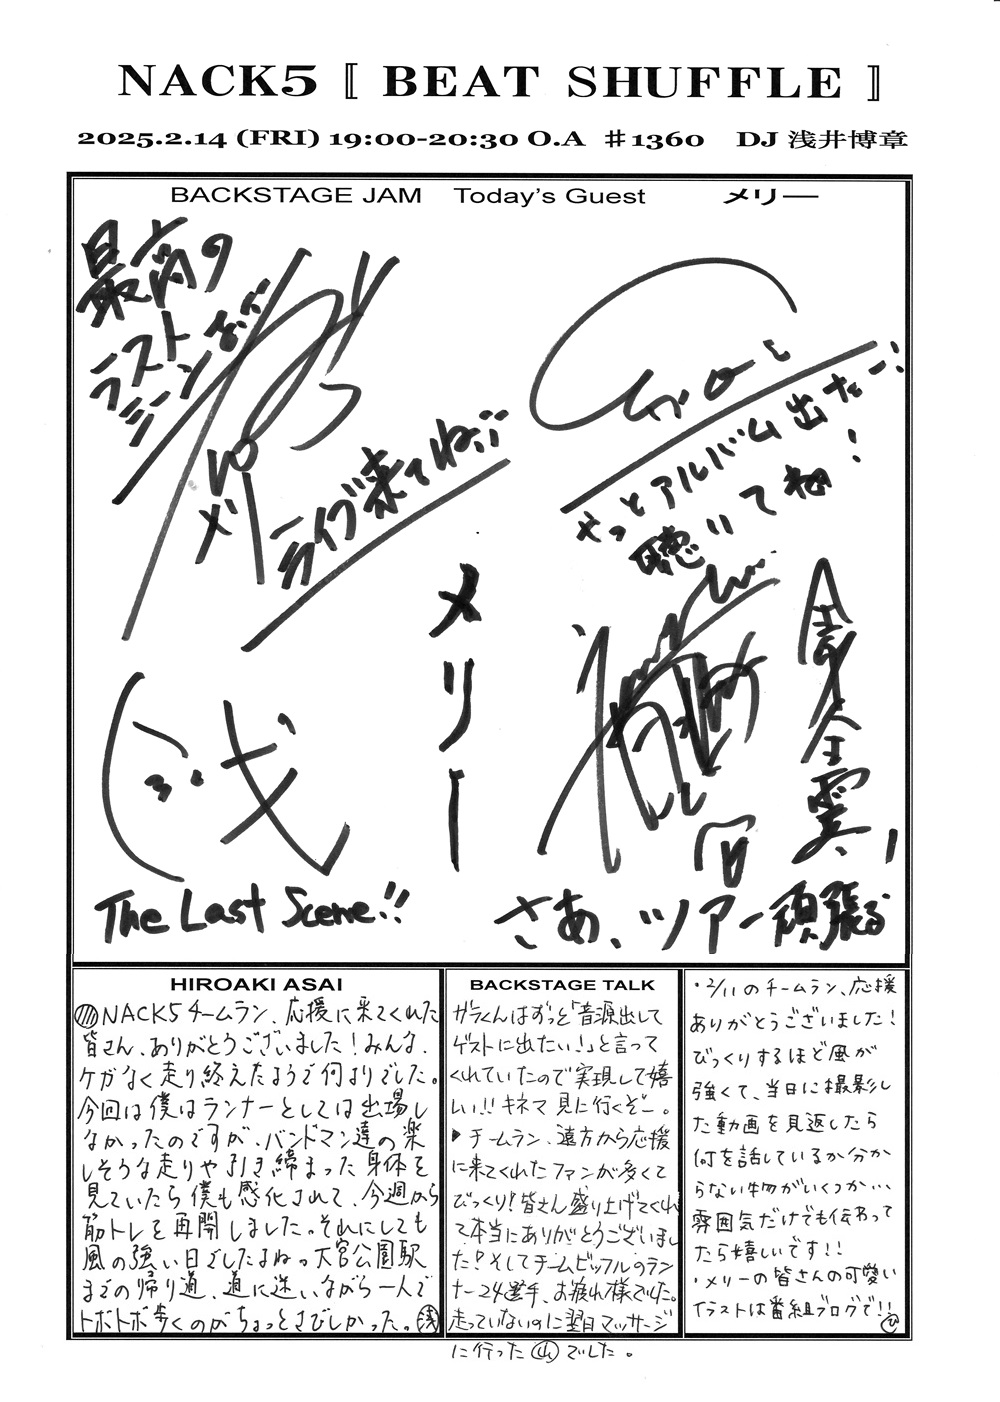 NACK5 〚 BEAT SHUFFLE 〛
2025.2.14 (FRI) 19:00-20:30 O.A ♯1360 DJ 浅井博章
BACKSTAGE JAM Today's Guest メリー
最高の
ラスト
シーンを
メリ
ライブ来てね!!
やっとアルバム出たー!
聴いてね!
メリー
The Last Scene!!
さあ、ツアー頑張る
HIROAKI ASAI
NACK5チームラン、応援に来てくれた
皆さん、ありがとうございました!みんな、
ケガなく走り終えたようで何よりでした。
今回は僕はランナーとしては出場し
なかったのですが、バンドマン達の楽
しそうな走りや引き締まった身体を
見ていたら僕も感化されて、今週から
筋トレを再開しました。それにしても
風の強い日でしたよねっ大宮公園駅
までの帰り道、道に迷いながら一人で
トボトボ歩くのがちょっとさびしかった。浅
BACKSTAGE TALK
ガラくんはずっと「音源出して
ゲストに出たい!」と言って
くれていたので実現して嬉
しい!!キネマ見に行くぞー。
▶チームラン、遠方から応援
に来てくれたファンが多くて
びっくり!皆さん盛り上げてくれ
て本当にありがとうございまし
た!そしてチームビッフルのラン
ナー24選手、お疲れ様でした。
走っていないのに翌日マッサージ
に行った山でした。
・2/11のチームラン、応援
ありがとうございました!
びっくりするほど風が
強くて、当日に撮影し
た動画を見返したら
何を話しているか分か
らない物がいくつか…
雰囲気だけでも伝わって
たら嬉しいです!!
・メリーの皆さんの可愛い
イラストは番組ブログで!!